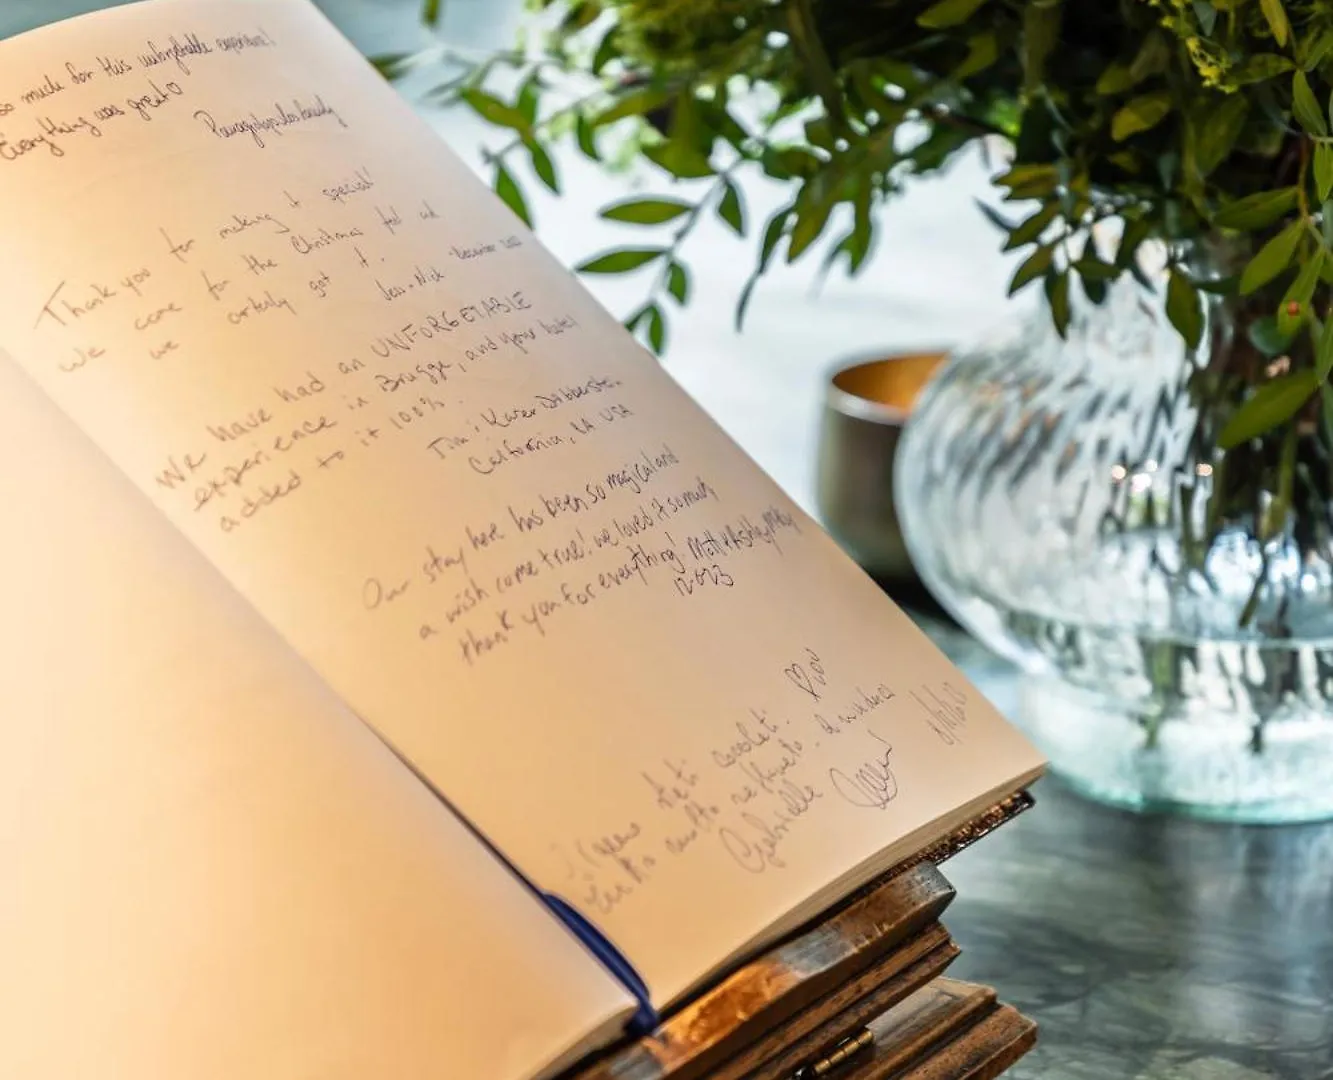 so much for this unforgettable experience!
Everything was great ♡
family
Thank you for making it special!
We came for the Christmas feel and
we certainly got it.
Jess + Nick - December 2023
We have had an UNFORGETABLE
experience in Brugge, and your hotel
added to it 100%.
Tim & Karen
California, CA USA
Our stay here has been so magical and
a wish come true! we loved it so much,
thank you for everything! Matt & Ashley
12-2023
Gabrielle